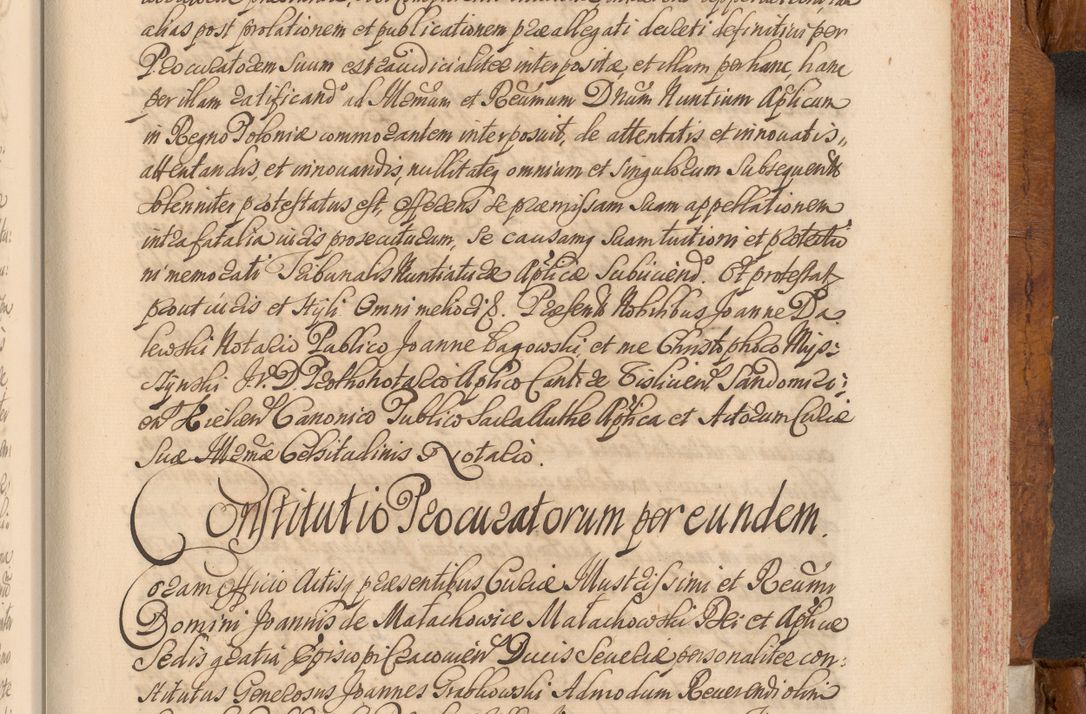 alias post prolationem et publicationem præallegati decreti definitivi per
Procuratorem Suum extrajudicialiter interpositæ, et illam per hanc, hanc
per illam ratificando ad Illmum et Reumum Dnum Nuntium Aplicum
in Regno Poloniæ commorantem interposuit, de attentatis et innouatis,,
attentandis, et innouandis, nullitateq omnium et Singulorum Subsequent
Solenniter protestatus est, offerens se præmissam Suam appellationem
intra fatalia iuris prosecuturum, se causamq Suam tuitioni et protectio
ni memorati Tribunalis Nuntiaturæ Aplicæ Subiiciendo. Et protestat
prout iuris et Styli Omni meliori &. Præsent Nobilibus Joanne Da,
lewski Notario Publico Joanne Bagowski, et me Christophoro Mys:
Prothonotario Aplico Sandomiri:
en Kielcen Canonico Publico Sacra Authe Aplica et Actorum Curiæ
Suæ Illmæ Celsitudinis Notario.
Constitutio Procuratorum per eundem.
Coram Officio Actisq præsentibus Curiæ Illustrissimi et Reumi
Domini Joannis de Małachowice Małachowski Dei et Aplicæ
Sedis gratia Episcopi Cracovien Ducis Seueriæ personaliter con:
stitutus Generosus Joannes Grabkowski Admodum Reuerendi olim